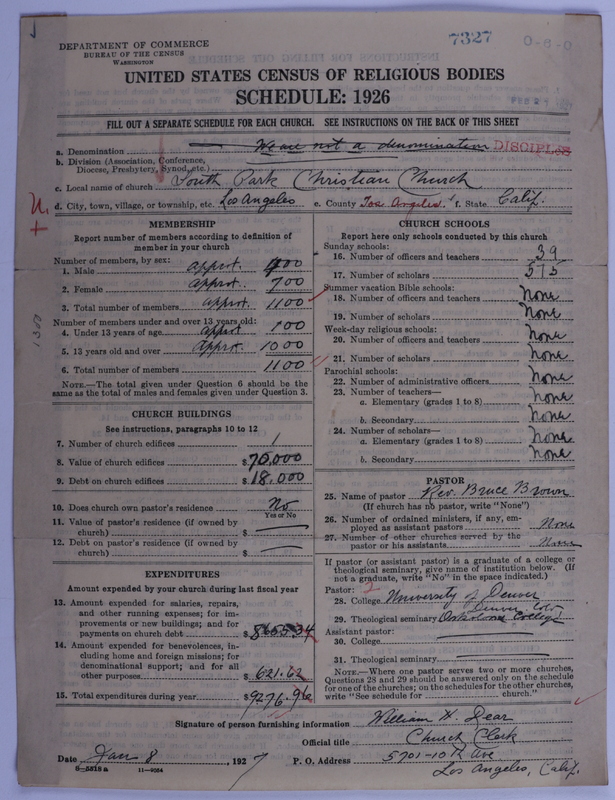 7327
0-6-0
DEPARTMENT OF COMMERCE
BUREAU OF THE CENSUS
WASHINGTON
UNITED STATES CENSUS OF RELIGIOUS BODIES
SCHEDULE: 1926
FILL OUT A SEPARATE SCHEDULE FOR EACH CHURCH. SEE INSTRUCTIONS ON THE BACK OF THIS SHEET
a. Denomination We are not a denomination DISCIPLES
b. Division (Association, Conference,
Diocese, Presbytery, Synod, etc.)
c. Local name of church South Park Christian Church
d. City, town, village, or township, etc. Los Angeles e. County Los Angeles f. State Calif.
MEMBERSHIP
Report number of members according to definition of
member in your church
Number of members, by sex:
1. Male approx. 400
2. Female approx. 700
3. Total number of members approx. 1100
Number of members under and over 13 years old:
4. Under 13 years of age approx. 100
5. 13 years old and over approx. 1000
6. Total number of members 1100
NOTE.—The total given under Question 6 should be the
same as the total of males and females given under Question 3.
CHURCH BUILDINGS
See instructions, paragraphs 10 to 12
7. Number of church edifices 1
8. Value of church edifices $70,000
9. Debt on church edifices $18,000
10. Does church own pastor's residence? No
Yes or No
11. Value of pastor's residence (if owned by
church) $
12. Debt on pastor's residence (if owned by
church) $
EXPENDITURES
Amount expended by your church during last fiscal year
13. Amount expended for salaries, repairs,
and other running expenses; for im-
provements or new buildings; and for
payments on church debt $8655.34
14. Amount expended for benevolences, in-
cluding home and foreign missions; for
denominational support; and for all
other purposes $621.62
15. Total expenditures during year $9276.96
CHURCH SCHOOLS
Report here only schools conducted by this church
Sunday schools:
16. Number of officers and teachers 39
17. Number of scholars 575
Summer vacation Bible schools:
18. Number of officers and teachers None
19. Number of scholars None
Week-day religious schools:
20. Number of officers and teachers None
21. Number of scholars None
Parochial schools:
22. Number of administrative officers None
23. Number of teachers—
a. Elementary (grades 1 to 8) None
b. Secondary None
24. Number of scholars—
a. Elementary (grades 1 to 8) None
b. Secondary None
PASTOR
25. Name of pastor Rev. Bruce Brown
(If church has no pastor, write "None")
26. Number of ordained ministers, if any, em-
ployed as assistant pastors None
27. Number of other churches served by the
pastor or his assistants None
If pastor (or assistant pastor) is a graduate of a college or
theological seminary, give name of institution below. (If
not a graduate, write "No" in the space indicated.)
Pastor:
28. College University of Denver
Denver Colo
29. Theological seminary Oskaloosa College
Assistant pastor:
30. College
31. Theological seminary
NOTE.—Where one pastor serves two or more churches,
Questions 28 and 29 should be answered only on the schedule
for one of the churches; on the schedules for the other churches,
write "See schedule for church."
Signature of person furnishing information William W. Dear
Official title Church Clerk
Date Jan 8, 1927 P. O. Address 5701-10th Ave
8-5518a 11-9054
Los Angeles, Calif.